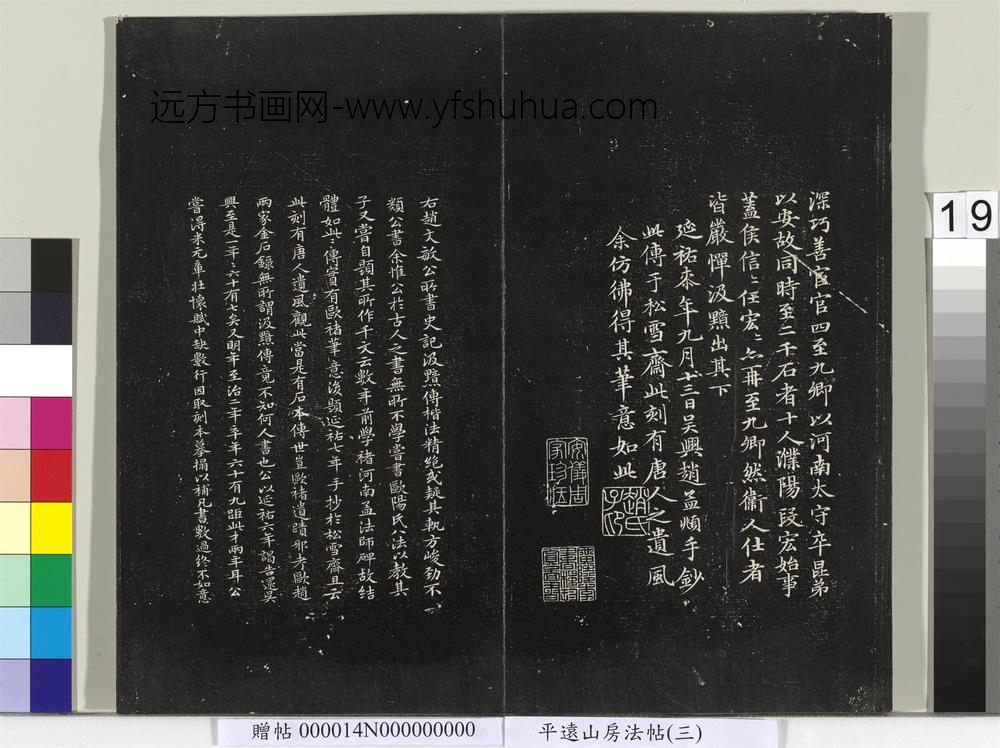 远方书画网-www.yfshuhua.com
深巧善宦官四至九卿以河南太守卒昆弟
以安故同時至二千石者十人濮陽段宏始事
蓋侯信信任宏宏亦再至九卿然衞人仕者
皆嚴憚汲黯出其下
延祐柒年九月十三日吳興趙孟頫手鈔
此傳于松雪齋此刻有唐人之遺風
余仿彿得其筆意如此
趙氏子昂
安儀周家珍藏
右趙文敏公所書史記汲黯傳楷法精絶或疑其軌方峻勁不
類公書余惟公於古人之書無所不學嘗書歐陽氏八法以教其
子又嘗自題其所作千文云數年前學褚河南孟法師碑故結
體如此此傳實有歐褚筆意後題延祐七年手抄於松雪齋且云
此刻有唐人遺風觀此當是有石本傳世豈歐褚遺蹟邪考歐趙
兩家金石錄無所謂汲黯傳竟不知何人書也公以延祐六年謁告還吳
興至是一年六十有七矣又明年至治二年卒年六十有九距此才兩年耳公
嘗得米元章壯懷賦中缺數行因取刻本摹搨以補凡書數過終不如意
19
贈帖 000014N000000000
平遠山房法帖(三)